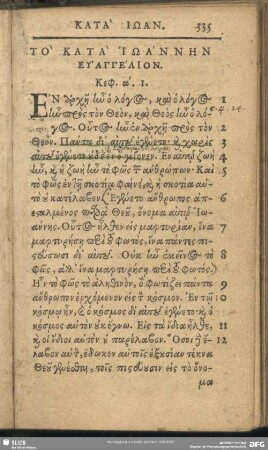 ΚΑΤΑ' ΙΩΑΝ. 535
ΤΟ' ΚΑΤΑ' ἸΩΑΝΝΗΝ
ΕΥΑΓΓΕΛΙΟΝ.
Κεφ. α. 1.
ΕΝ ἀρχῇ ἦν ὁ λόγος, καὶ ὁ λόγος 1
ἦν πρὸς τὸν Θεὸν, καὶ Θεὸς ἦν ὁ λό-
γος. Οὗτος ἦν ἐν ἀρχῇ πρὸς τὸν 2
Θεόν. Πάντα δι' αὐτοῦ ἐγένετο· καὶ χωρὶς 3
αὐτοῦ ἐγένετο οὐδὲ ἓν ὃ γέγονεν. Ἐν αὐτῷ ζωὴ 4
ἦν, καὶ ἡ ζωὴ ἦν τὸ φῶς τῶν ἀνθρώπων· Καὶ 5
τὸ φῶς ἐν τῇ σκοτίᾳ φαίνει, καὶ ἡ σκοτία αὐ-
τὸ οὐ κατέλαβεν. Ἐγένετο ἄνθρωπος ἀπε- 6
σταλμένος παρὰ Θεοῦ, ὄνομα αὐτῷ Ἰω-
άννης. Οὗτος ἦλθεν εἰς μαρτυρίαν, ἵνα 7
μαρτυρήσῃ περὶ τοῦ φωτὸς, ἵνα πάντες πι-
στεύσωσι δι' αὐτοῦ. Οὐκ ἦν ἐκεῖνος τὸ 8
φῶς, ἀλλ' ἵνα μαρτυρήσῃ περὶ τοῦ φωτός.
Ἦν τὸ φῶς τὸ ἀληθινὸν, ὃ φωτίζει πάντα 9
ἄνθρωπον ἐρχόμενον εἰς τὸν κόσμον. Ἐν τῷ 10
κόσμῳ ἦν, καὶ ὁ κόσμος δι' αὐτοῦ ἐγένετο· καὶ ὁ
κόσμος αὐτὸν οὐκ ἔγνω. Εἰς τὰ ἴδια ἦλθε, 11
καὶ οἱ ἴδιοι αὐτὸν οὐ παρέλαβον. Ὅσοι δὲ 12
ἔλαβον αὐτὸν, ἔδωκεν αὐτοῖς ἐξουσίαν τέκνα
Θεοῦ γενέσθαι, τοῖς πιστεύουσιν εἰς τὸ ὄνο-
μα
SLUB
DFG